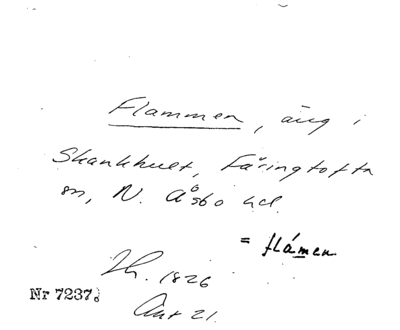 Flammen, äng i
Skankhult, Färingtofta
sn, N. Åsbo hd.
= flámen
Lh. 1826
Nr 7237.
Akt 21.